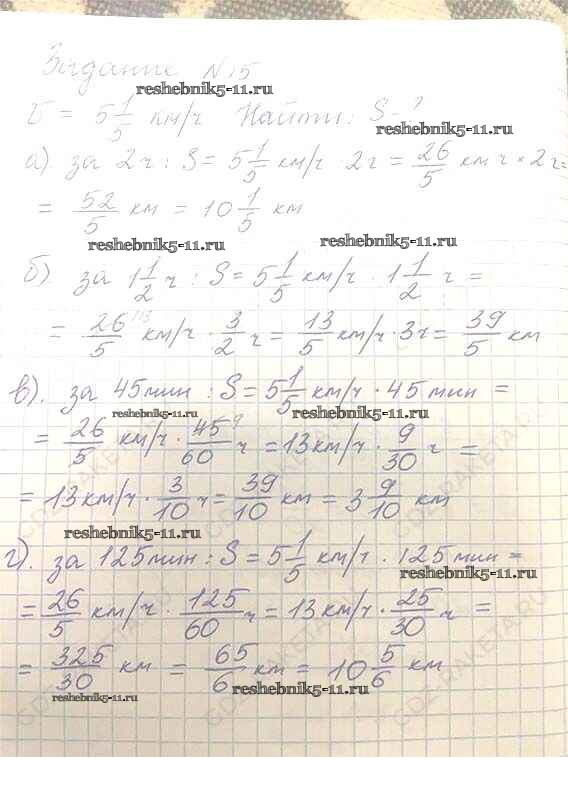 Задание №15
reshebnik5-11.ru
υ = 5 1/5 км/ч Найти: S-?
reshebnik5-11.ru
а) за 2ч : S = 5 1/5 км/ч · 2ч = 26/5 км/ч × 2ч =
= 52/5 км = 10 1/5 км
reshebnik5-11.ru
reshebnik5-11.ru
б) за 1 1/2 ч : S = 5 1/5 км/ч · 1 1/2 ч =
= 26/5 км/ч · 3/2 ч = 13/5 км/ч · 3ч = 39/5 км
в). за 45мин : S = 5 1/5 км/ч · 45 мин =
reshebnik5-11.ru
reshebnik5-11.ru
= 26/5 км/ч · 45/60 ч = 13км/ч · 9/30 ч =
= 13 км/ч · 3/10 ч = 39/10 км = 3 9/10 км
reshebnik5-11.ru
г). за 125мин : S = 5 1/5 км/ч · 125мин =
reshebnik5-11.ru
= 26/5 км/ч · 125/60 ч = 13км/ч · 25/30 ч =
= 325/30 км = 65/6 км = 10 5/6 км
reshebnik5-11.ru
reshebnik5-11.ru
GDZ-RAKETA.RU